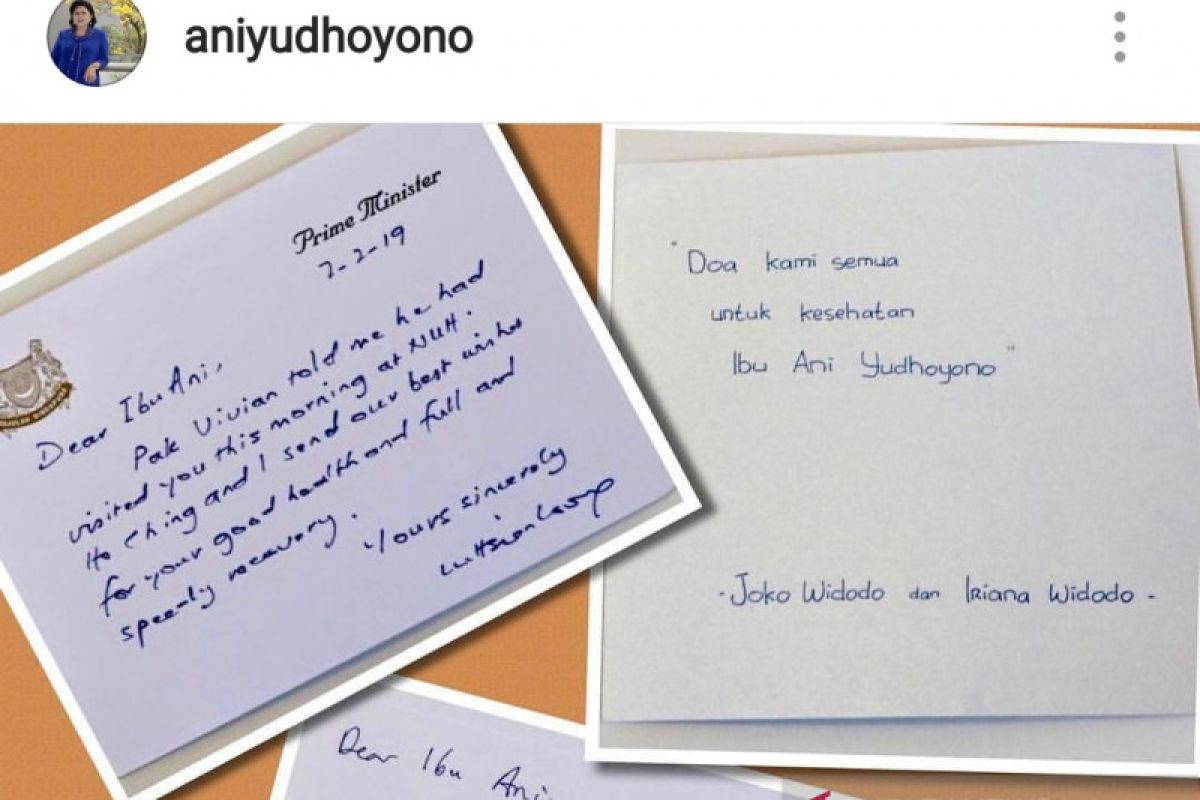 aniyudhoyono
Prime Minister
7-2-19
Dear Ibu Ani,
Pak Vivian told me he had
visited you this morning at NUH.
Ho Ching and I send our best wishes
for your good health and full and
speedy recovery.
Yours sincerely
"Doa kami semua
untuk kesehatan
Ibu Ani Yudhoyono"
-Joko Widodo dan Iriana Widodo -
Dear Ibu Ani